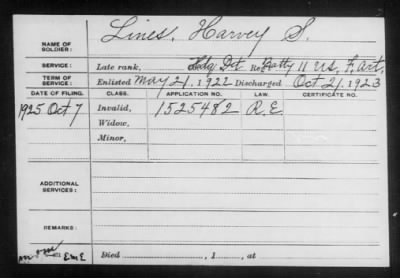 Lines, Harvey S.
NAME OF SOLDIER:
SERVICE: Late rank, Hdq Det Re Batty 11 US, F art,
TERM OF SERVICE: Enlisted May 21, 1922 Discharged Oct 21, 1923
DATE OF FILING. CLASS. APPLICATION NO. LAW. CERTIFICATE NO.
1925 Oct 7 Invalid, 1525482 R.E.
Widow,
Minor,
ADDITIONAL SERVICES:
REMARKS:
EmE Died , 1 , at